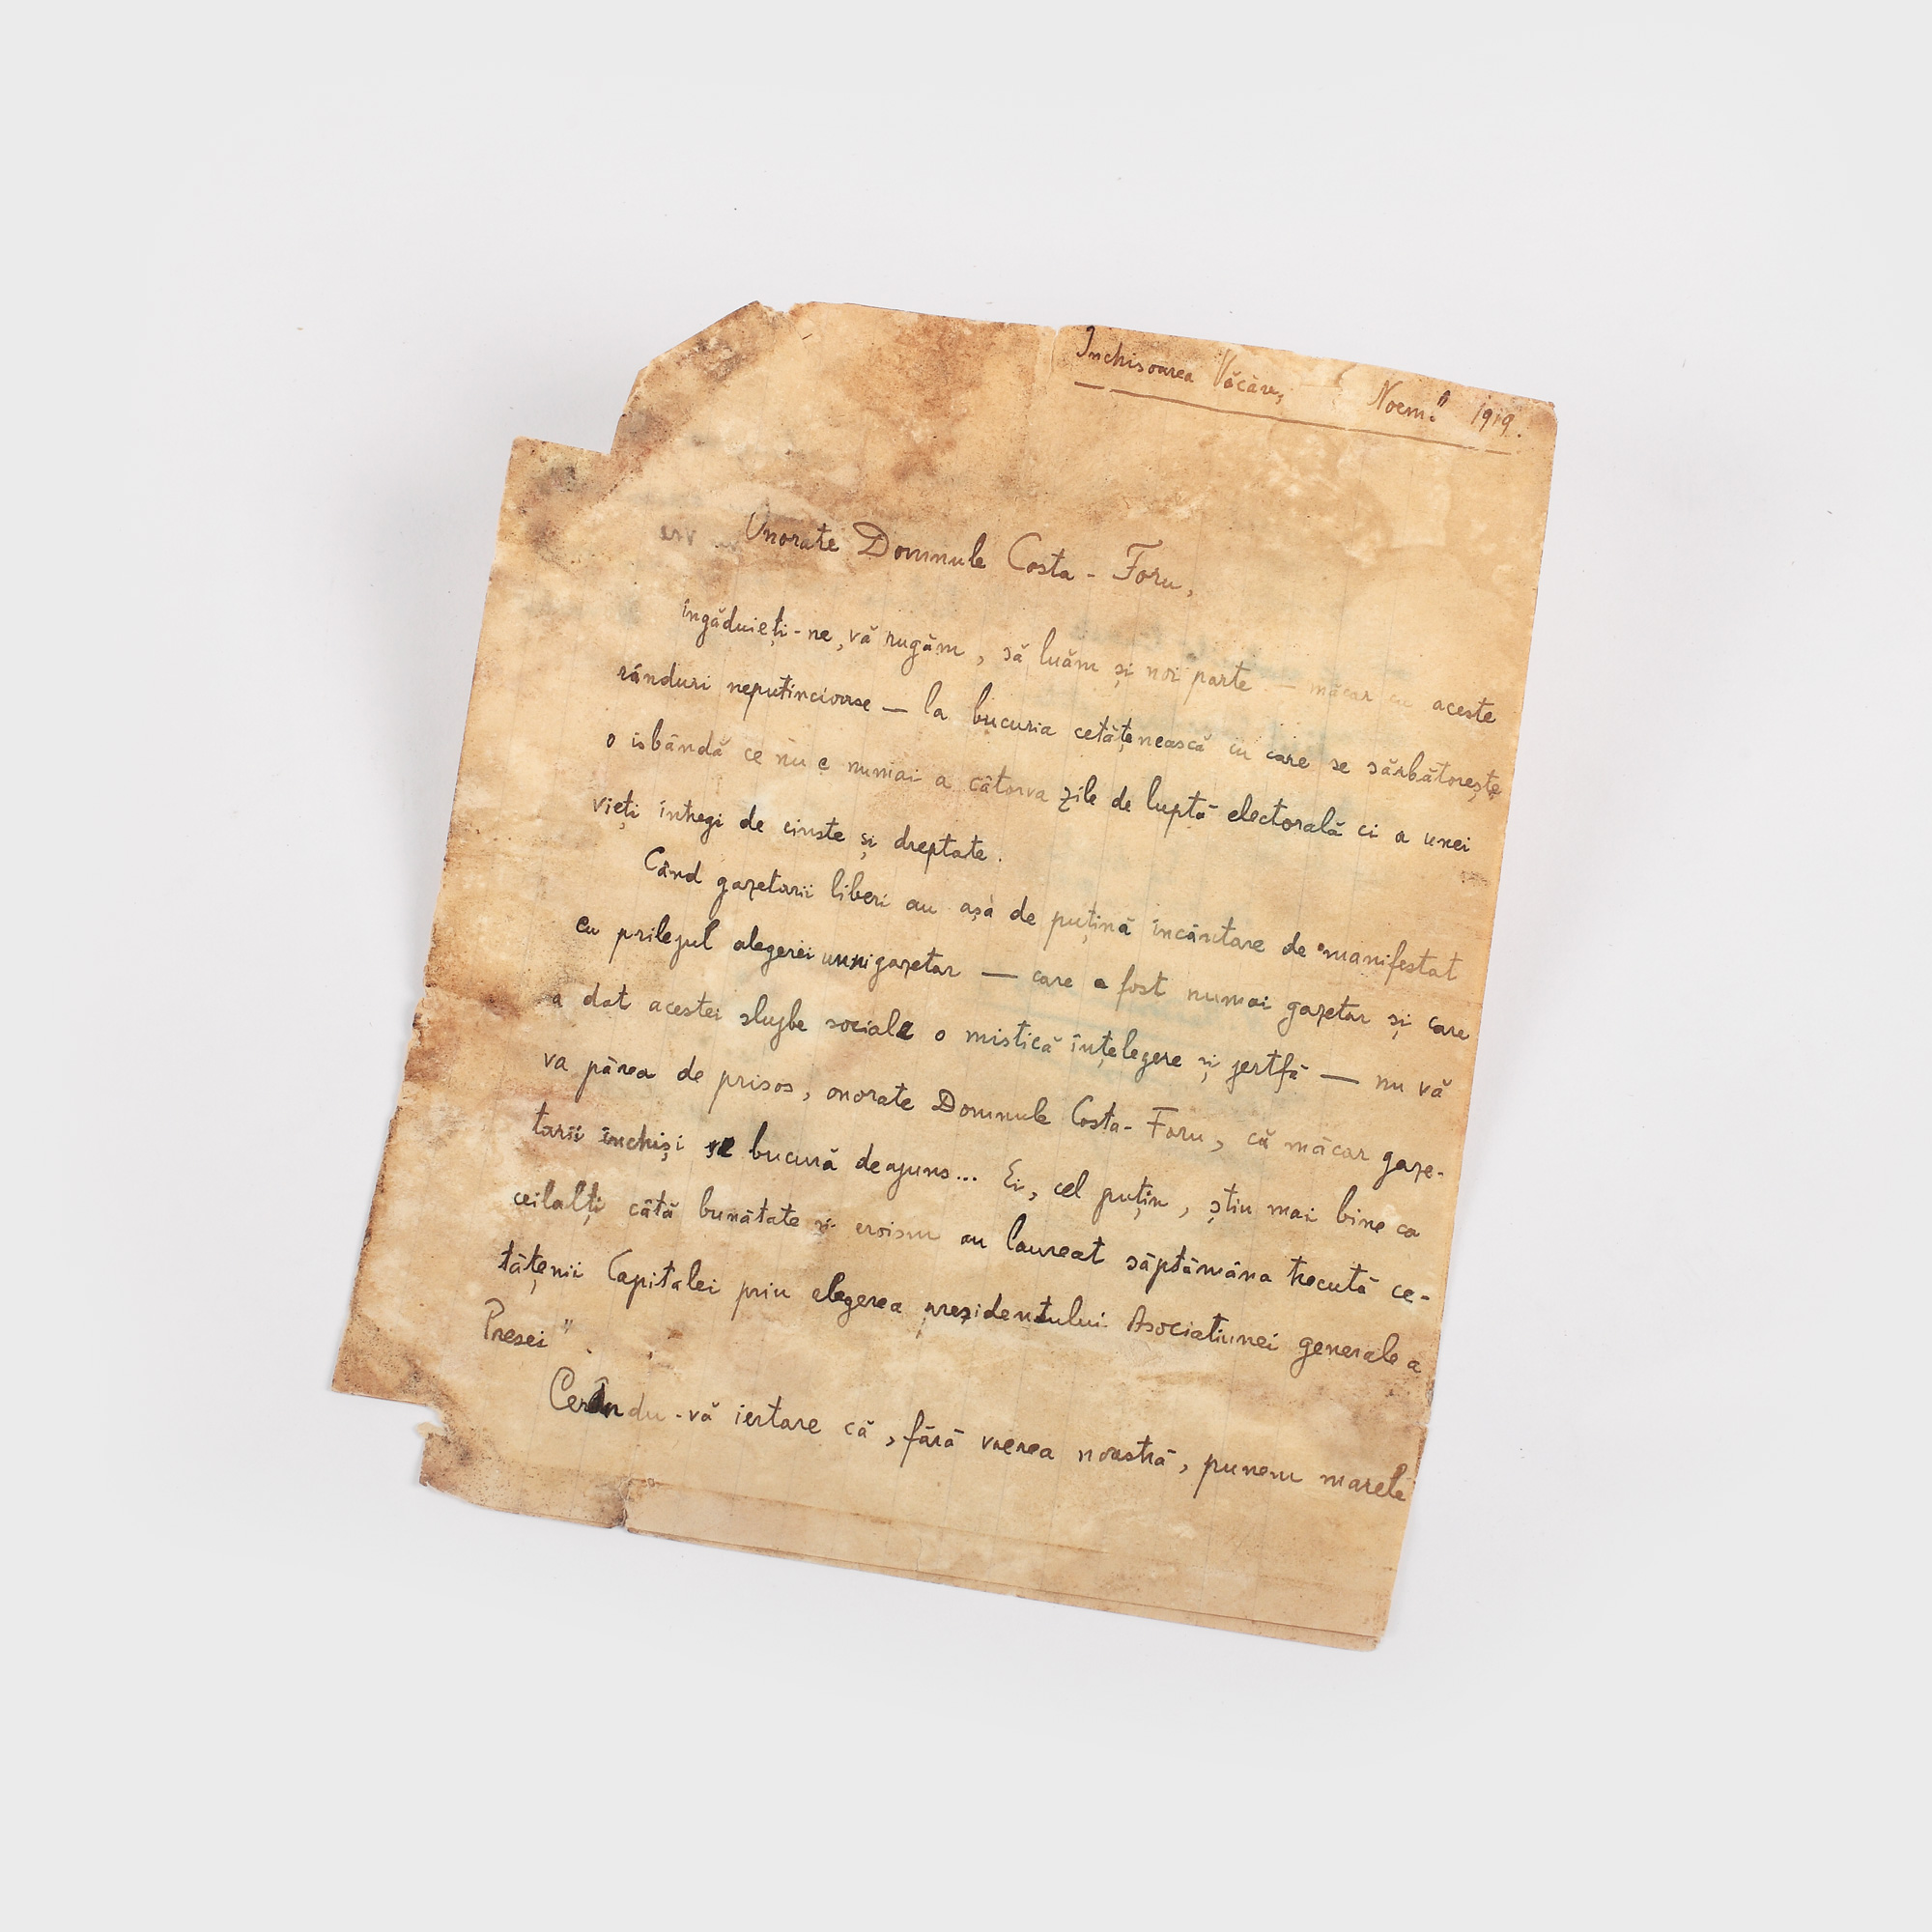 Închisoarea Văcăre, Noem. 1919.
Onorate Domnule Costa-Foru,
îngăduieți-ne, vă rugăm, să luăm și noi parte — măcar cu aceste
rânduri neputincioase — la bucuria cetățenească cu care se sărbătorește
o isbândă ce nu e numai a câtorva zile de luptă electorală ci a unei
vieți întregi de cinste și dreptate.
Când gazetarii liberi au așà de puțină încântare de manifestat
cu prilejul alegerei unui gazetar — care a fost numai gazetar și care
a dat acestei slujbe sociale o mistică înțelegere și jertfă — nu vă
va părea de prisos, onorate Domnule Costa-Foru, că măcar gaze-
tarii închiși se bucură deajuns... Ei, cel puțin, știu mai bine ca
ceilalți câtă bunătate și eroism au laureat săptămâna trecută ce-
tățenii Capitalei prin alegerea președentului Asociatiunei generale a
Presei".
Cerându-vă iertare că, fără vrerea noastră, punem marele